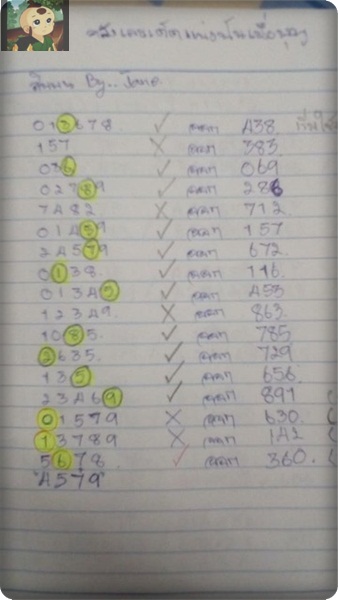 By.. Jane
013678 ✓ ออก A38
157 X ออก 383
036 ✓ ออก 069
02789 ✓ ออก 286
7A82 X ออก 712
01A59 ✓ ออก 157
2A579 ✓ ออก 672
0138. ✓ ออก 116
013A5 ✓ ออก A53
123A9. X ออก 863
1085. ✓ ออก 785
2635. ✓ ออก 729
135 ✓ ออก 656
23A69 ✓ ออก 891
01579 X ออก 630.
13789 X ออก 1A2
5678. ✓ ออก 360.
"A579"